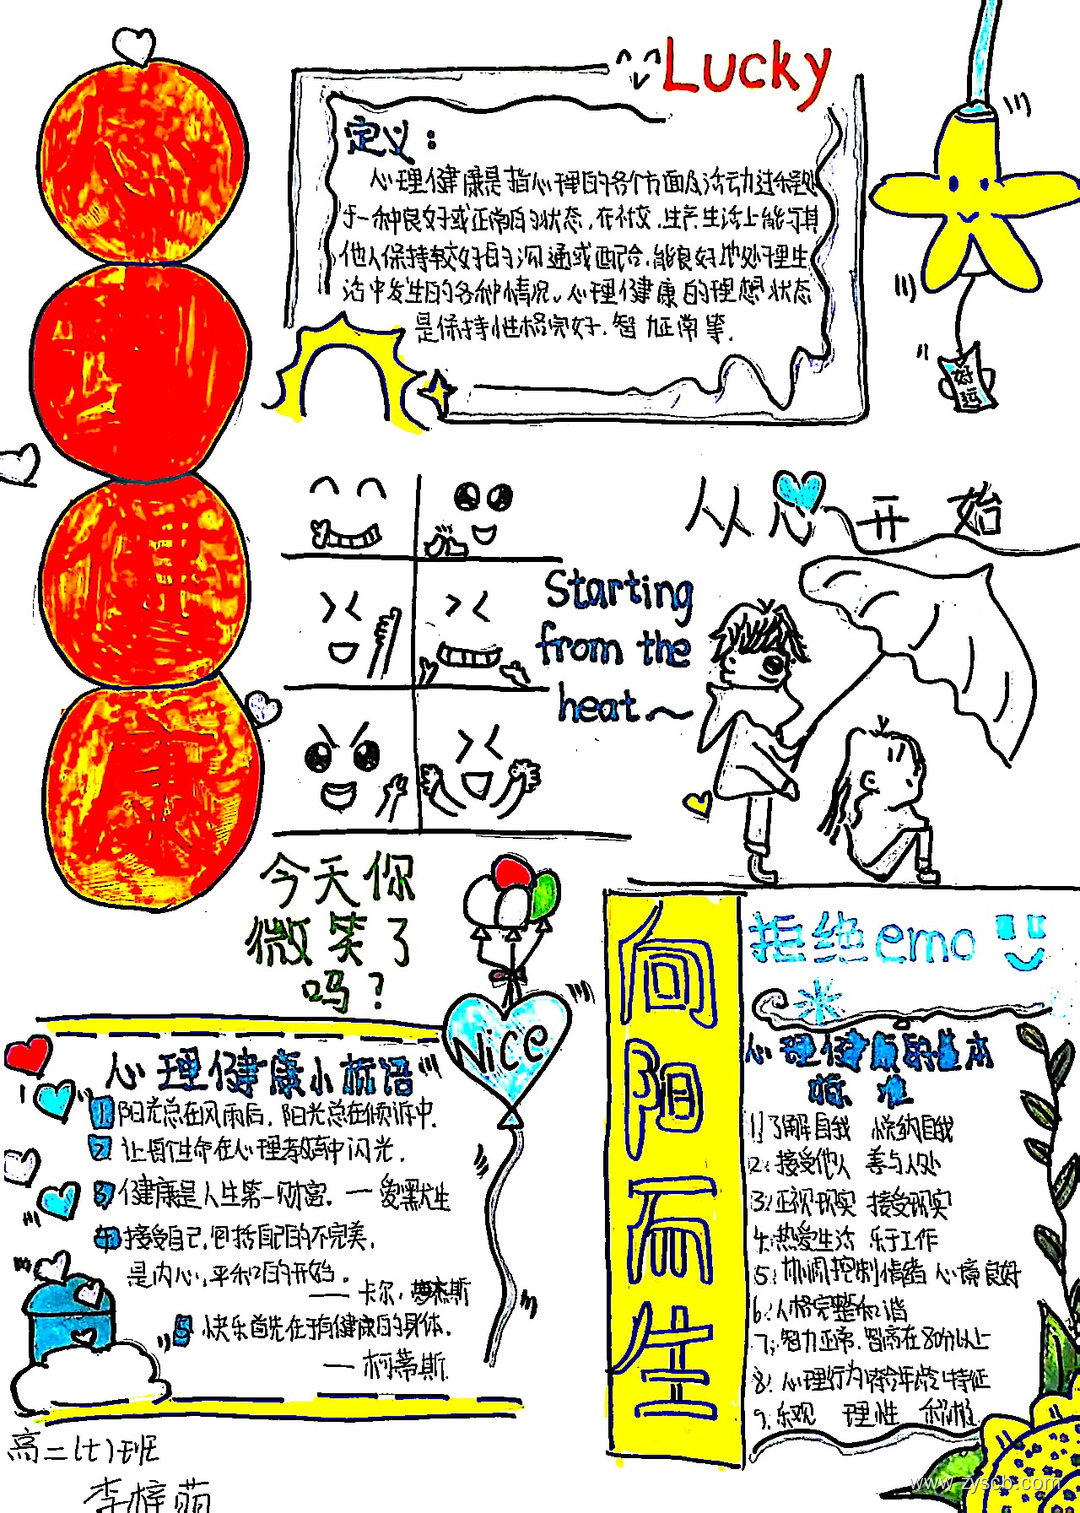 心
理
健
康
Lucky
定义：
心理健康是指心理的各个方面及活动过程处
于一种良好或正常的状态，在社交、生产、生活上能与其
他人保持较好的沟通或配合，能良好地处理生
活中发生的各种情况。心理健康的理想状态
是保持性格完好、智力正常等.
好运
从心开始
Starting
from the
heat~
今天你
微笑了
吗？
Nice
心理健康小标语
1 阳光总在风雨后，阳光总在倾诉中.
2 让每个生命在心理教育中闪光.
3 健康是人生第一财富. —爱默尔生
4 接受自己,包括自己的不完美,
是内心平和的开始.
——卡尔·罗杰斯
5 快乐首先在于有健康的身体.
—柯蒂斯
高二(七)班
李梓萌
向阳而生
拒绝emo
心理健康的基本
标准
1.了解自我 悦纳自我
2.接受他人 善与人处
3.正视现实 接受现实
4.热爱生活 乐于工作
5.协调控制情绪 心境良好
6.人格完整和谐
7.智力正常.智商在80分以上
8.心理行为符合年龄特征
9.乐观 理性 积极
www.zyscb.com